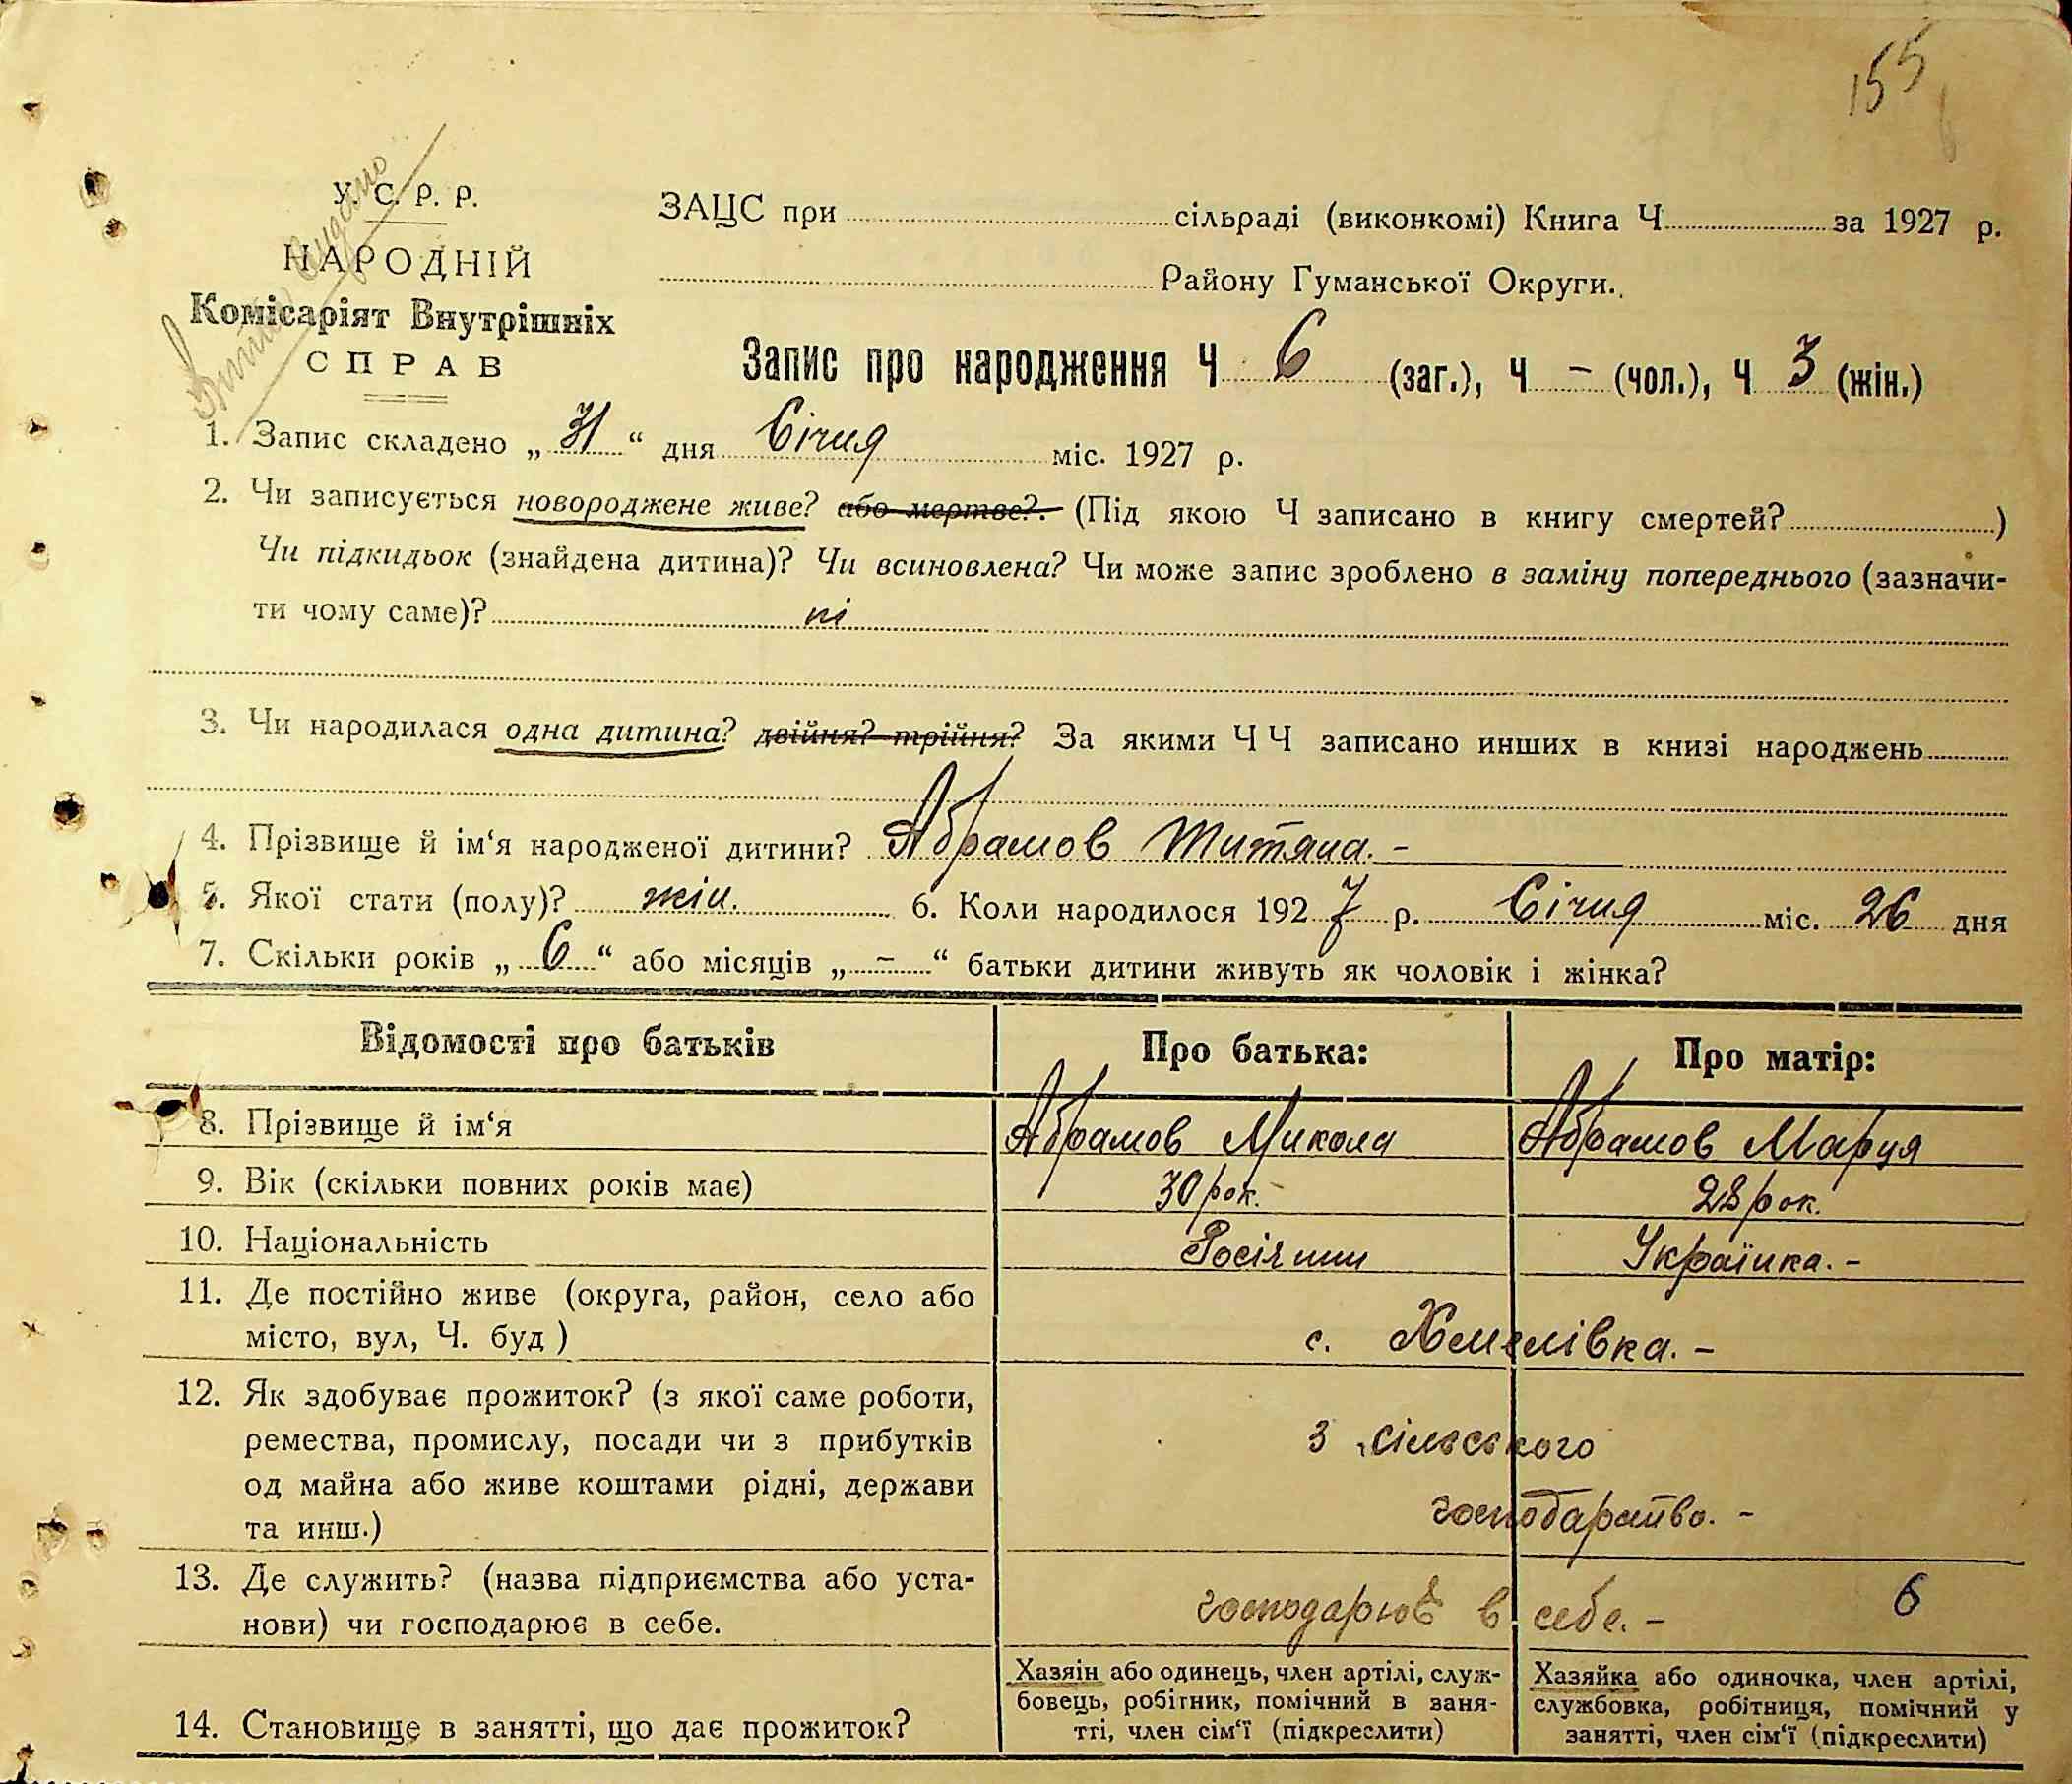 155
У. С. Р. Р.
НАРОДНІЙ
Комісаріят Внутрішніх
СПРАВ
Витяг видано
ЗАЦС при сільраді (виконкомі) Книга Ч. за 1927 р.
Району Гуманської Округи.
Запис про народження Ч 6 (заг.), Ч – (чол.), Ч 3 (жін.)
1. Запис складено „31“ дня Січня міс. 1927 р.
2. Чи записується новороджене живе? або мертве?. (Під якою Ч записано в книгу смертей? )
Чи підкидьок (знайдена дитина)? Чи всиновлена? Чи може запис зроблено в заміну попереднього (зазначи-
ти чому саме)? ні
3. Чи народилася одна дитина? двійня? трійня? За якими Ч Ч записано инших в книзі народжень
4. Прізвище й ім‘я народженої дитини? Абрамов Титяна. –
5. Якої стати (полу)? жін. 6. Коли народилося 1927 р. Січня міс. 26 дня
7. Скільки років „6“ або місяців „–“ батьки дитини живуть як чоловік і жінка?
Відомості про батьків Про батька: Про матір:
8. Прізвище й ім‘я Абрамов Микола Абрамов Маруся
9. Вік (скільки повних років має) 30 рок. – 28 рок.
10. Національність Росіянин Українка. –
11. Де постійно живе (округа, район, село або
місто, вул, Ч. буд ) с. Хмелівка. –
12. Як здобуває прожиток? (з якої саме роботи,
ремества, промислу, посади чи з прибутків
од майна або живе коштами рідні, держави
та инш.)
з сільського
господарство. –
13. Де служить? (назва підприємства або уста-
нови) чи господарює в себе.
господарює в себе. – 6
14. Становище в занятті, що дає прожиток?
Хазяін або одинець, член артілі, служ-
бовець, робітник, помічний в заня-
тті, член сім‘ї (підкреслити)
Хазяйка або одиночка, член артілі,
службовка, робітниця, помічний у
занятті, член сім‘ї (підкреслити)